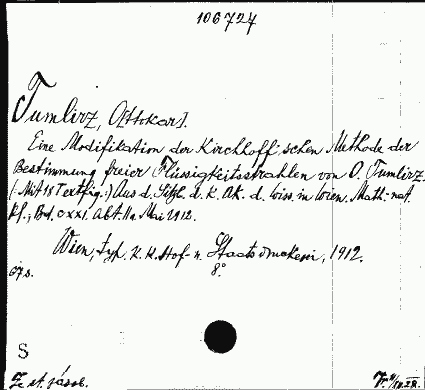 106724
Tumlirz, O[ttokar].
Eine Modifikation der Kirchhoff'schen Methode der
Bestimmung freier Flüssigkeitsstrahlen von O. Tumlirz.
(Mit 18 Textfig.) Aus d. Sitzb. d. k. Ak. d. Wiss. in Wien. Math.-nat.
Kl., Bd. CXXI. Abt. IIa Mai 1912.
Wien, typ. k. k. Hof- u. Staatsdruckerei, 1912.
8°
S
Ze st. jásob.